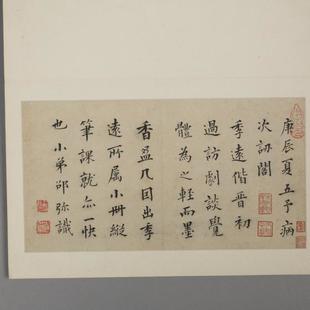 庚辰夏五予病
次訥閣
季遠偕晋初
過訪劇談覺
體為之輕而墨
香盈几因出季
遠所属小冊縱
筆課就亦一快
也小弟邵弥識